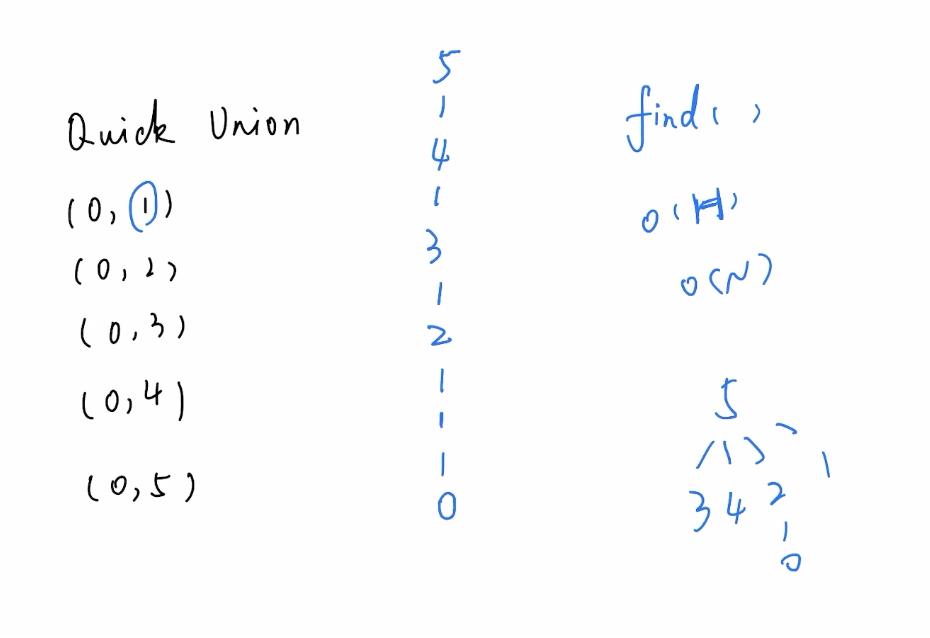 Quick Union
(0, 1)
(0, 2)
(0, 3)
(0, 4)
(0, 5)
5
4
3
2
1
0
find( )
O(H)
O(N)
5
3 4 2 1
0